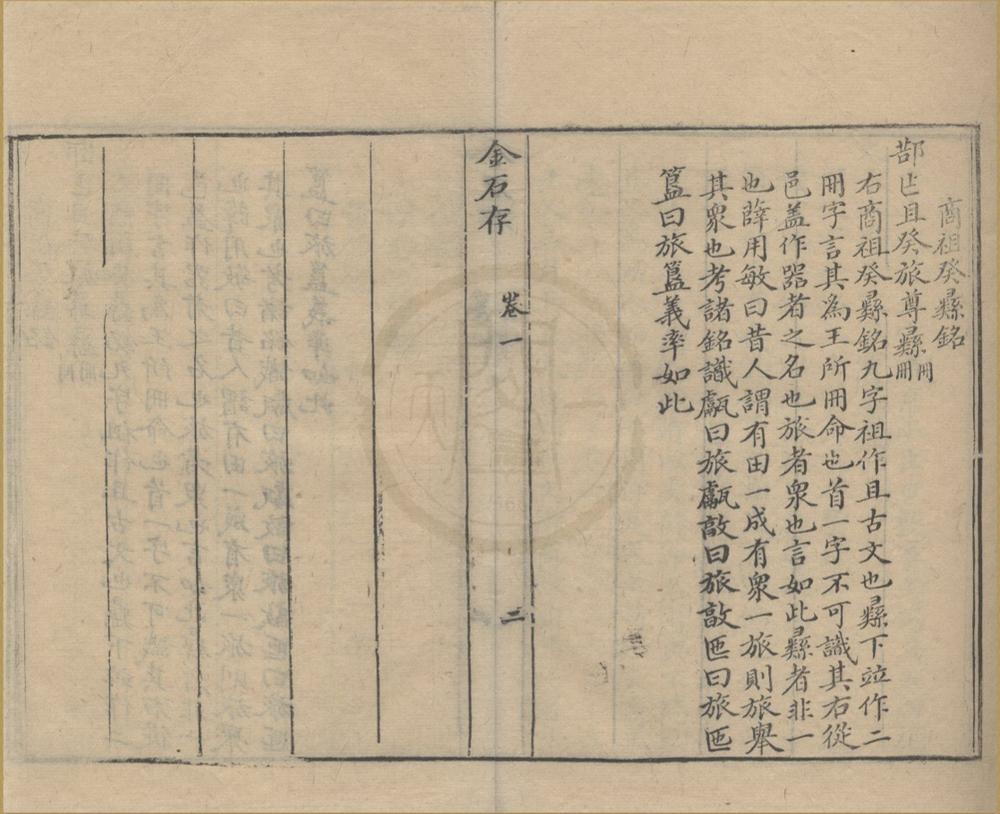 商祖癸彞銘
且癸旅尊彞冊冊
右商祖癸彞銘九字祖作且古文也彞下竝作二
冊字言其為王所冊命也首一字不可識其右從
邑盖作器者之名也旅者衆也言如此彞者非一
也薛用敏曰昔人謂有田一成有衆一旅則旅舉
其衆也考諸銘識甗曰旅甗敦曰旅敦匜曰旅匜
簠曰旅簠義率如此
金石存
卷一
二